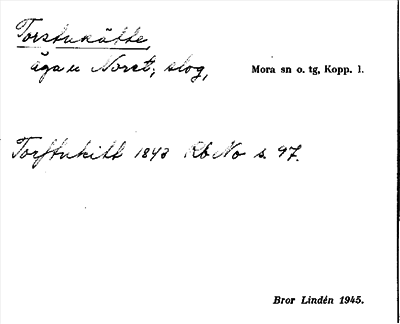 Torstukätte,
äga u Noret, slog, Mora sn o. tg, Kopp. l.
Torstukitt 1843 Rb No s. 97.
Bror Lindén 1945.